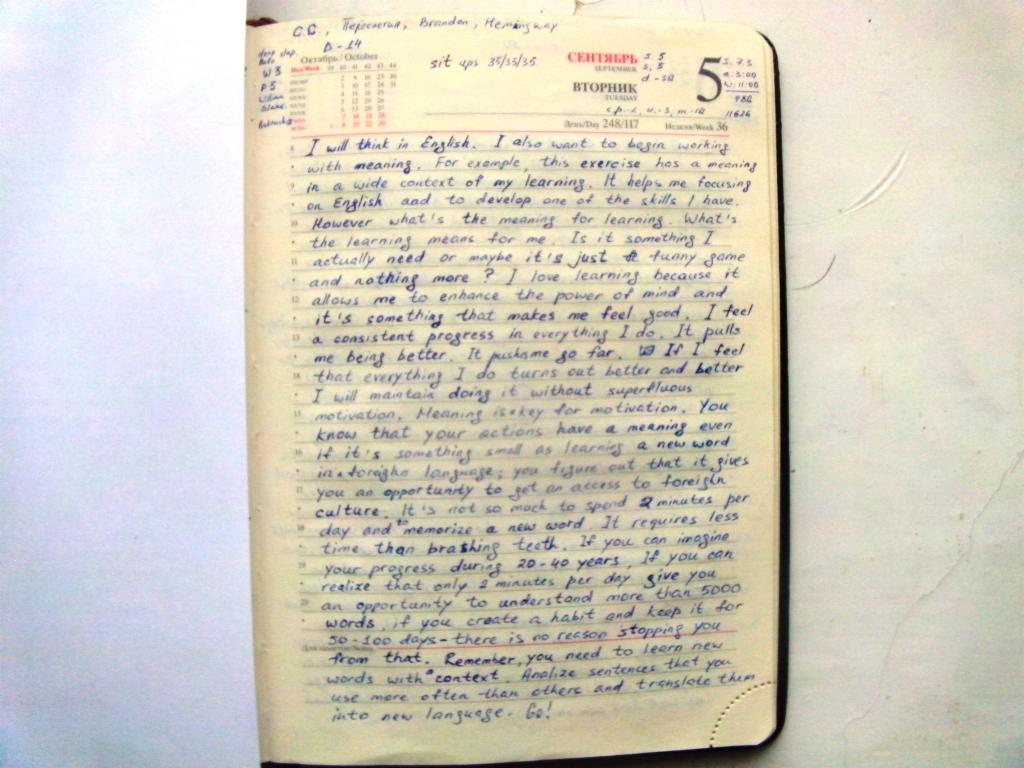 C.C., Переслегин, Brandon, Hemingway
D-14
Октябрь / October
W 3
P 5
sit ups 35/35/35
СЕНТЯБРЬ
SEPTEMBER
ВТОРНИК
TUESDAY
5
День/Day 248/117
Неделя/Week 36
I will think in English. I also want to begin working
with meaning. For example, this exercise has a meaning
in a wide context of my learning. It helps me focusing
on English and to develop one of the skills I have.
However what's the meaning for learning. What's
the learning means for me. Is it something I
actually need or maybe it's just a funny game
and nothing more? I love learning because it
allows me to enhance the power of mind and
it's something that makes me feel good. I feel
a consistent progress in everything I do. It pulls
me being better. It pushs me go far. If I feel
that everything I do turns out better and better
I will maintain doing it without superfluous
motivation. Meaning is a key for motivation. You
know that your actions have a meaning even
if it's something small as learning a new word
in a foreighn language; you figure out that it gives
you an opportunity to get an access to foreighn
culture. It's not so much to spend 2 minutes per
day and to memorize a new word. It requires less
time than brashing teeth. If you can imagine
your progress during 20-40 years. If you can
realize that only 2 minutes per day give you
an opportunity to understand more than 5000
words, if you create a habit and keep it for
50-100 days - there is no reason stopping you
from that. Remember, you need to learn new
words with a context. Analize sentences that you
use more often than others and translate them
into new language. Go!